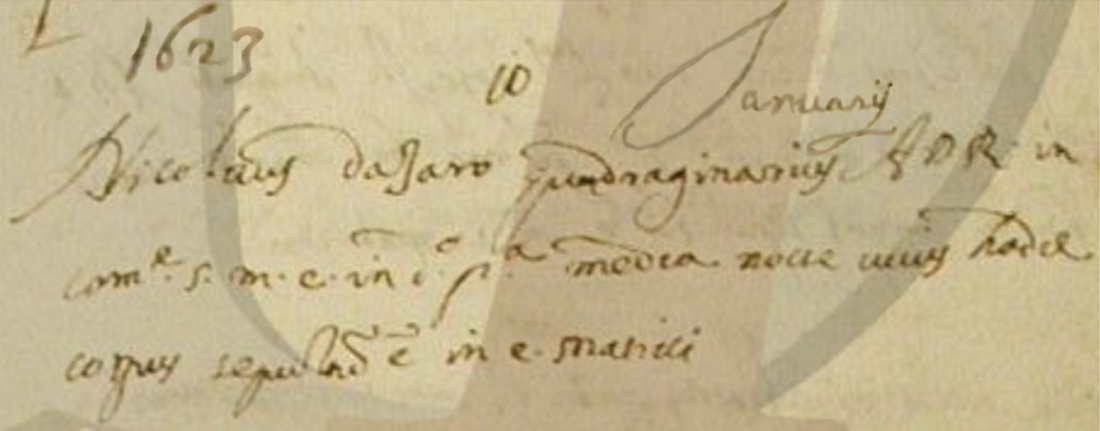 1623
10 Januarij
Nicolaus da Zaro quadraginarius A D R in
com.e s. m. e. in d.o p.a media nocte cuius hodie
corpus sepultũ ẽ in e. matrici